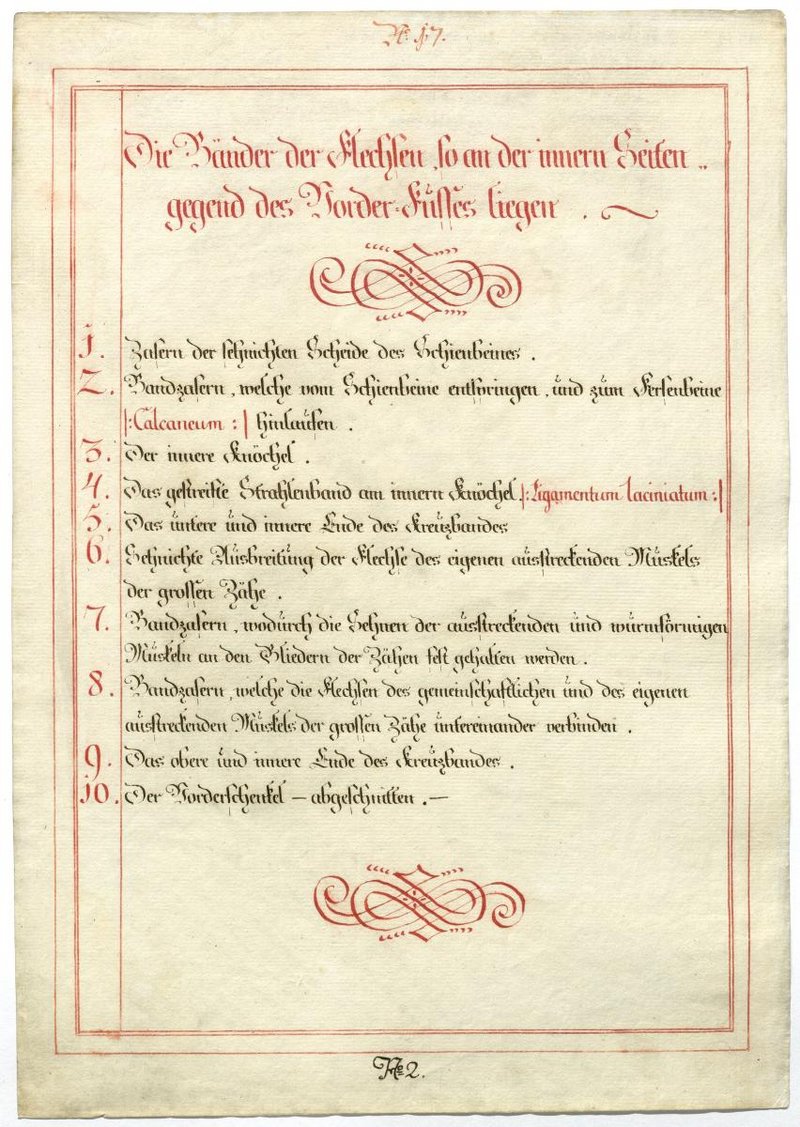 No. 17.
Die Bänder der Flechsen, so an der innern Seiten„
gegend des Vorder-Fusses liegen.
1. Zasern der sehnichten Scheide des Schienbeines.
2. Bandzasern, welche vom Schienbeine entspringen, und zum Fersenbeine
|: Calcaneum :| hinlaufen.
3. Der innere Knöchel.
4. Das gestreifte Strahlenband am innern Knöchel |: Ligamentum laciniatum :|
5. Das untere und innere Ende des Kreuzbandes
6. Sehnichte Ausbreitung der Flechse des eigenen ausstreckenden Muskels
der grossen Zähe.
7. Bandzasern, wodurch die Sehnen der ausstreckenden und wurmförmigen
Muskeln an den Gliedern der Zähen fest gehalten werden.
8. Bandzasern, welche die Flechsen des gemeinschaftlichen und des eigenen
ausstreckenden Muskels der grossen Zähe untereinander verbinden.
9. Das obere und innere Ende des Kreuzbandes.
10. Der Vorderschenkel — abgeschnitten. —
No 2.